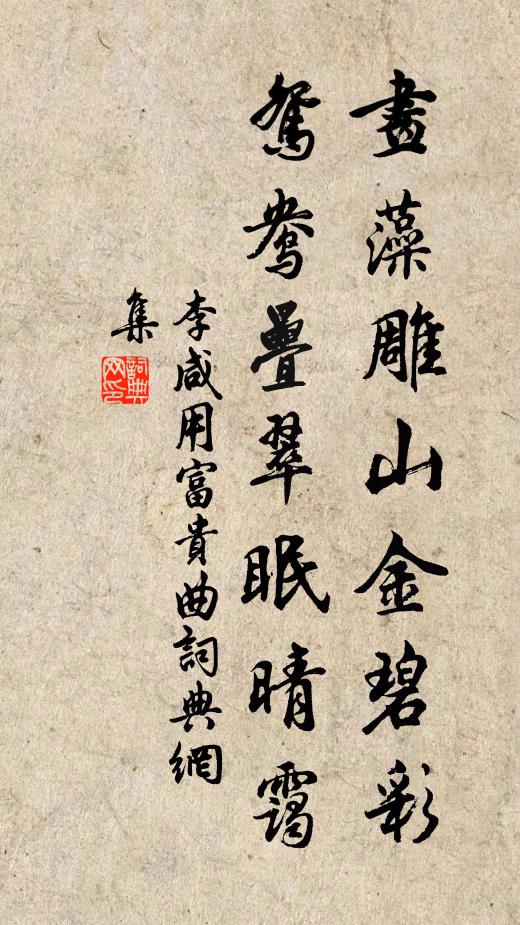 畫藻雕山金碧彩
鴛鴦疊翠眠晴靄
李咸用富貴曲詞典網
集
詞典
网印